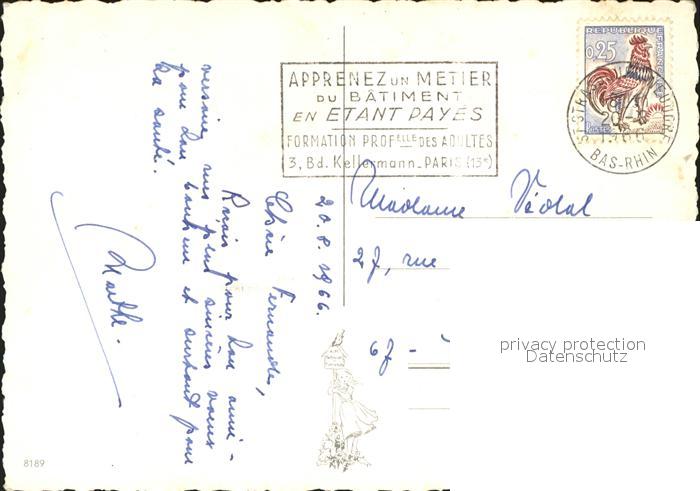 REPUBLIQUE FRANÇAISE
0,25
POSTES
APPRENEZ UN METIER
DU BÂTIMENT
EN ETANT PAYÉS
FORMATION PROFelle DES ADULTES
3, Bd. Kellermann - PARIS (13e)
BAS-RHIN
20.8.1966.
Chère Fernande,
pour ton anni-
versaire mes plus sincères voeux
pour ton bonheur et surtout pour
ta santé.
Marthe.
Madame Védal
27, rue
67 -
privacy protection
Datenschutz
8189